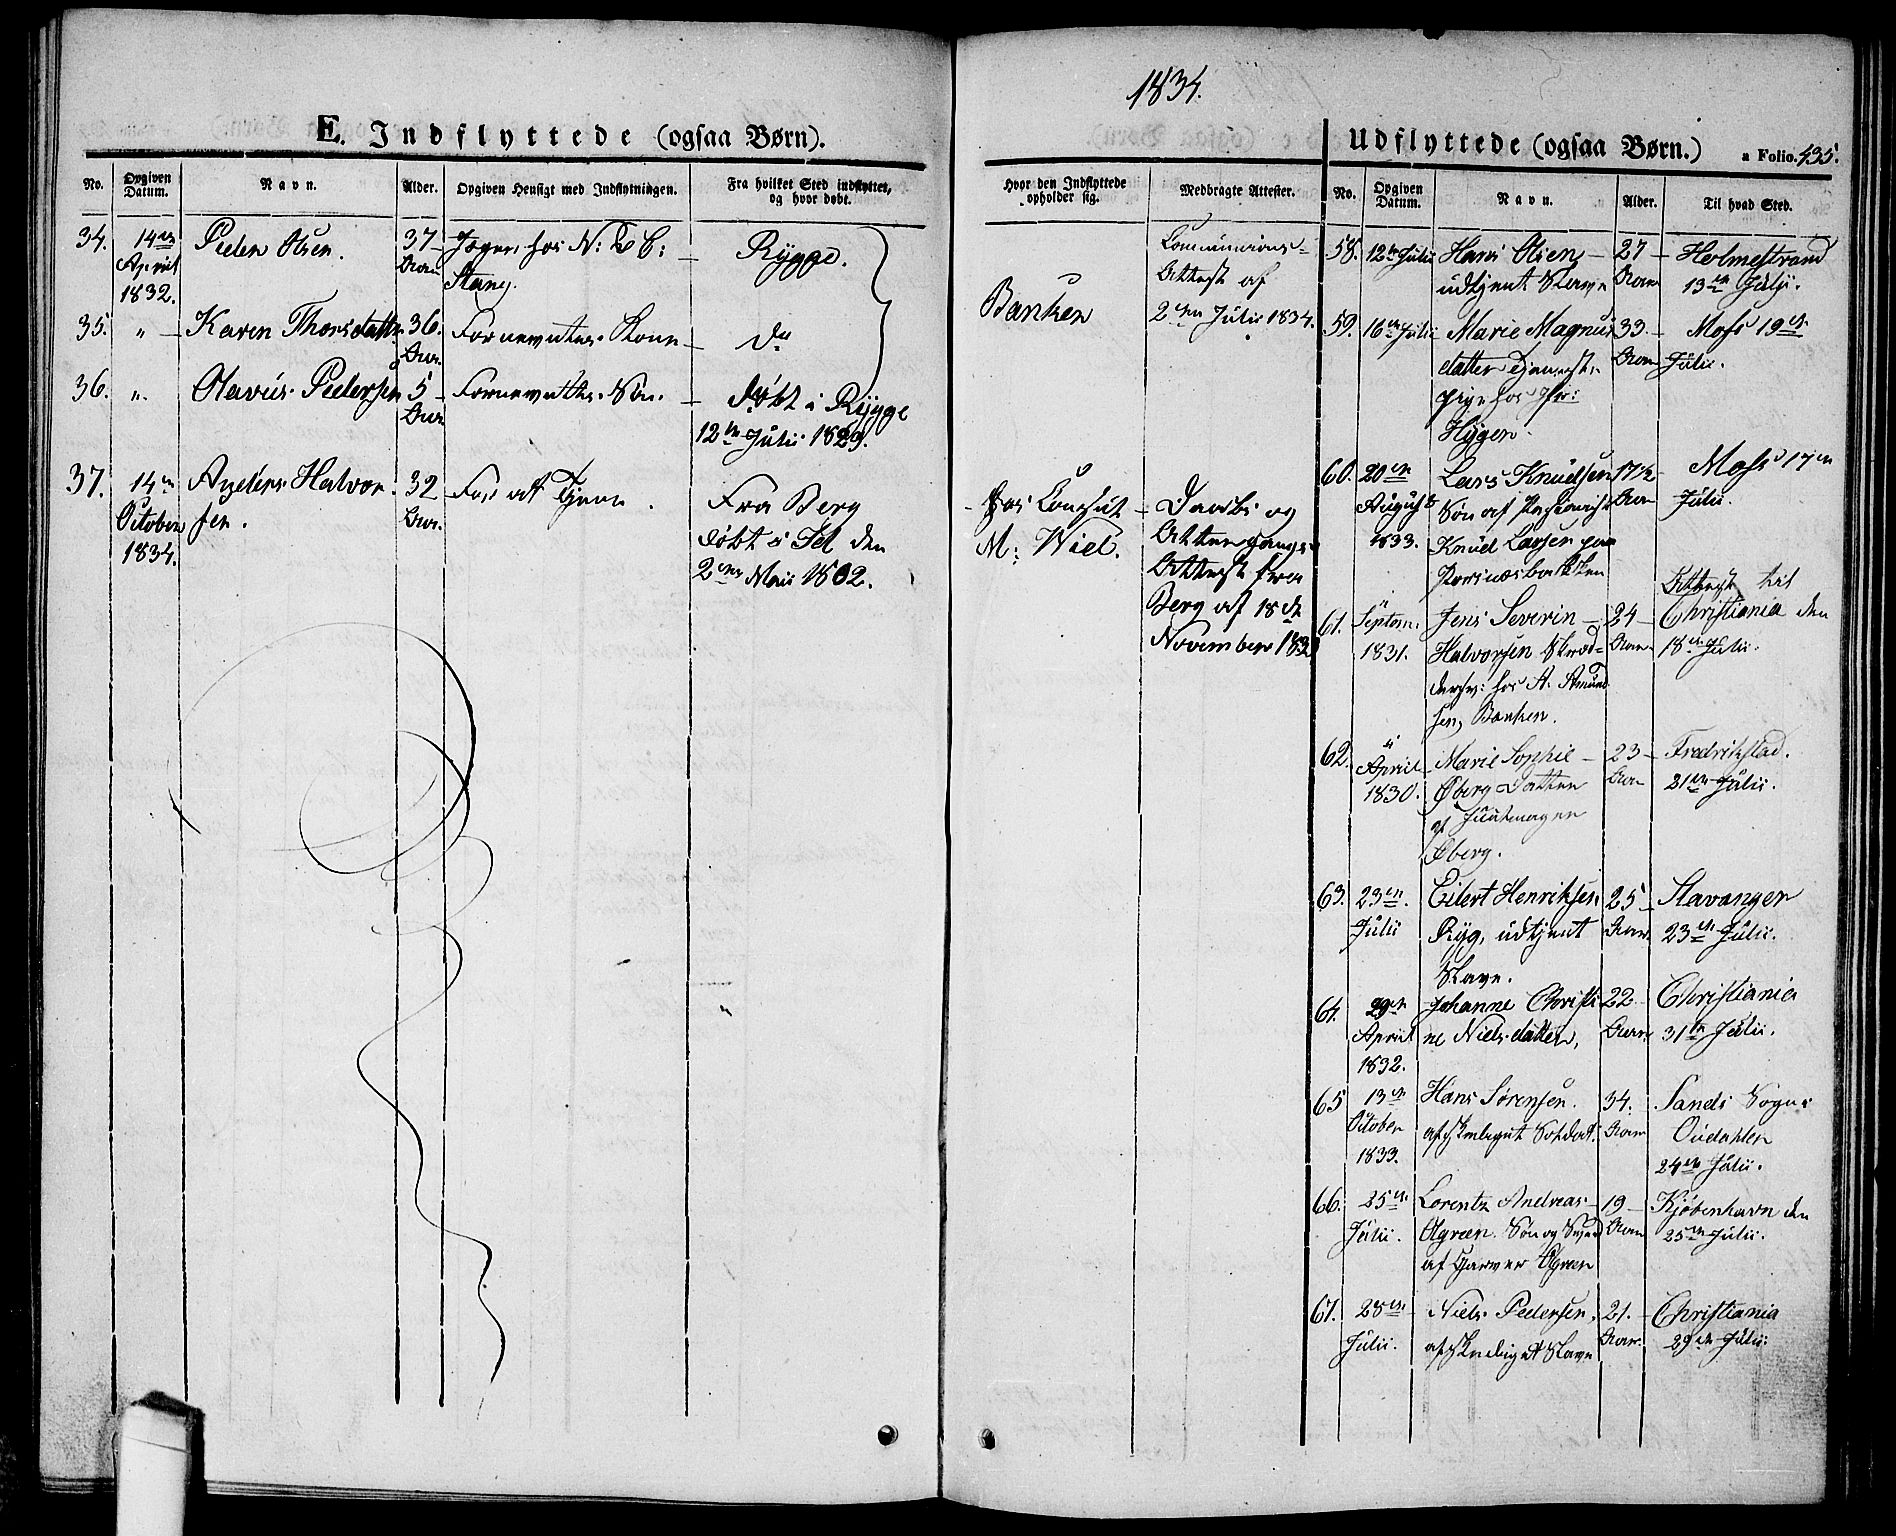 1834.
E. Indflyttede (ogsaa Børn).
No.
Opgiven Datum.
Navn.
Alder.
Opgiven Hensigt med Indflytningen.
Fra hvilket Sted indflyttet, og hvor døbt.
34.
14de
April
1832.
Peder Olsen.
37
Aar
hos N:
Stang.
Rygge.
35.
"
Karen Thorsdatter
36.
Aar.
Fornevntes Kone
do
36.
"
Olavus Pedersen
5
Aar
Fornevntes Søn.
døbt i Rygge
12te Julii 1829.
37.
14de
October
1834.
Anders Halvor-
sen.
32
Aar.
For at tjene.
Fra Berg
døbt i Id den
2den Maii 1802.
Hvor den Indflyttede opholder sig.
Medbragte Attester.
Banken
Communions-
Attest af
2den Julii 1834.
Hos Consul
M: Wiel.
Daabs og
Attest fra
Berg af 18de
November 183
Udflyttede (ogsaa Børn.)
a Folio. 435.
No.
Opgiven Datum.
Navn.
Alder.
Til hvad Sted.
58.
12te Julii
Hans Olsen,
udtjent Slave
27
Aar
Holmestrand
13de Julii.
59.
16de Julii
Marie Magnus
datter Tjeneste-
pige hos
Hygen.
33.
Aar
Moss 19de
Julii.
60.
20de
August
1833.
Lars Knudsen
Søn af
Knud Larsen paa
17½
Aar
Moss 17de
Julii.
61.
Septem:
1831.
Jens Severin
Halvorsen Skræd-
dersv: hos A. Amund
sen, Banken.
24
Aar
Attest til
Christiania den
18de Julii.
62.
April
1830.
Marie Sophie
Øberg Datter
af
Øberg.
23
Aar
Fredrikstad.
21de Julii.
63.
23de
Julii
Eilert Henriksen
Ryg, udtjent
Slave.
25
Aar.
Stavanger
23de Julii.
64.
29de
April
1832.
Johanne Christi
ne Nielsdatter,
22
Aar
Christiania
31te Julii.
65
13de
October
1833.
Hans Sørensen.
afskediget Soldat.
34.
Aar
Sands Sogn
Oudahlen
24de Julii.
66.
25de
Julii.
Lorentz Andreas
Øgreen. Søn og Svend
af Garver Øgreen
19
Aar
Kjøbenhavn den
25de Julii.
67.
28de
Julii.
Niels Pedersen,
afskediget Slave
21.
Aar.
Christiania
29de Julii.